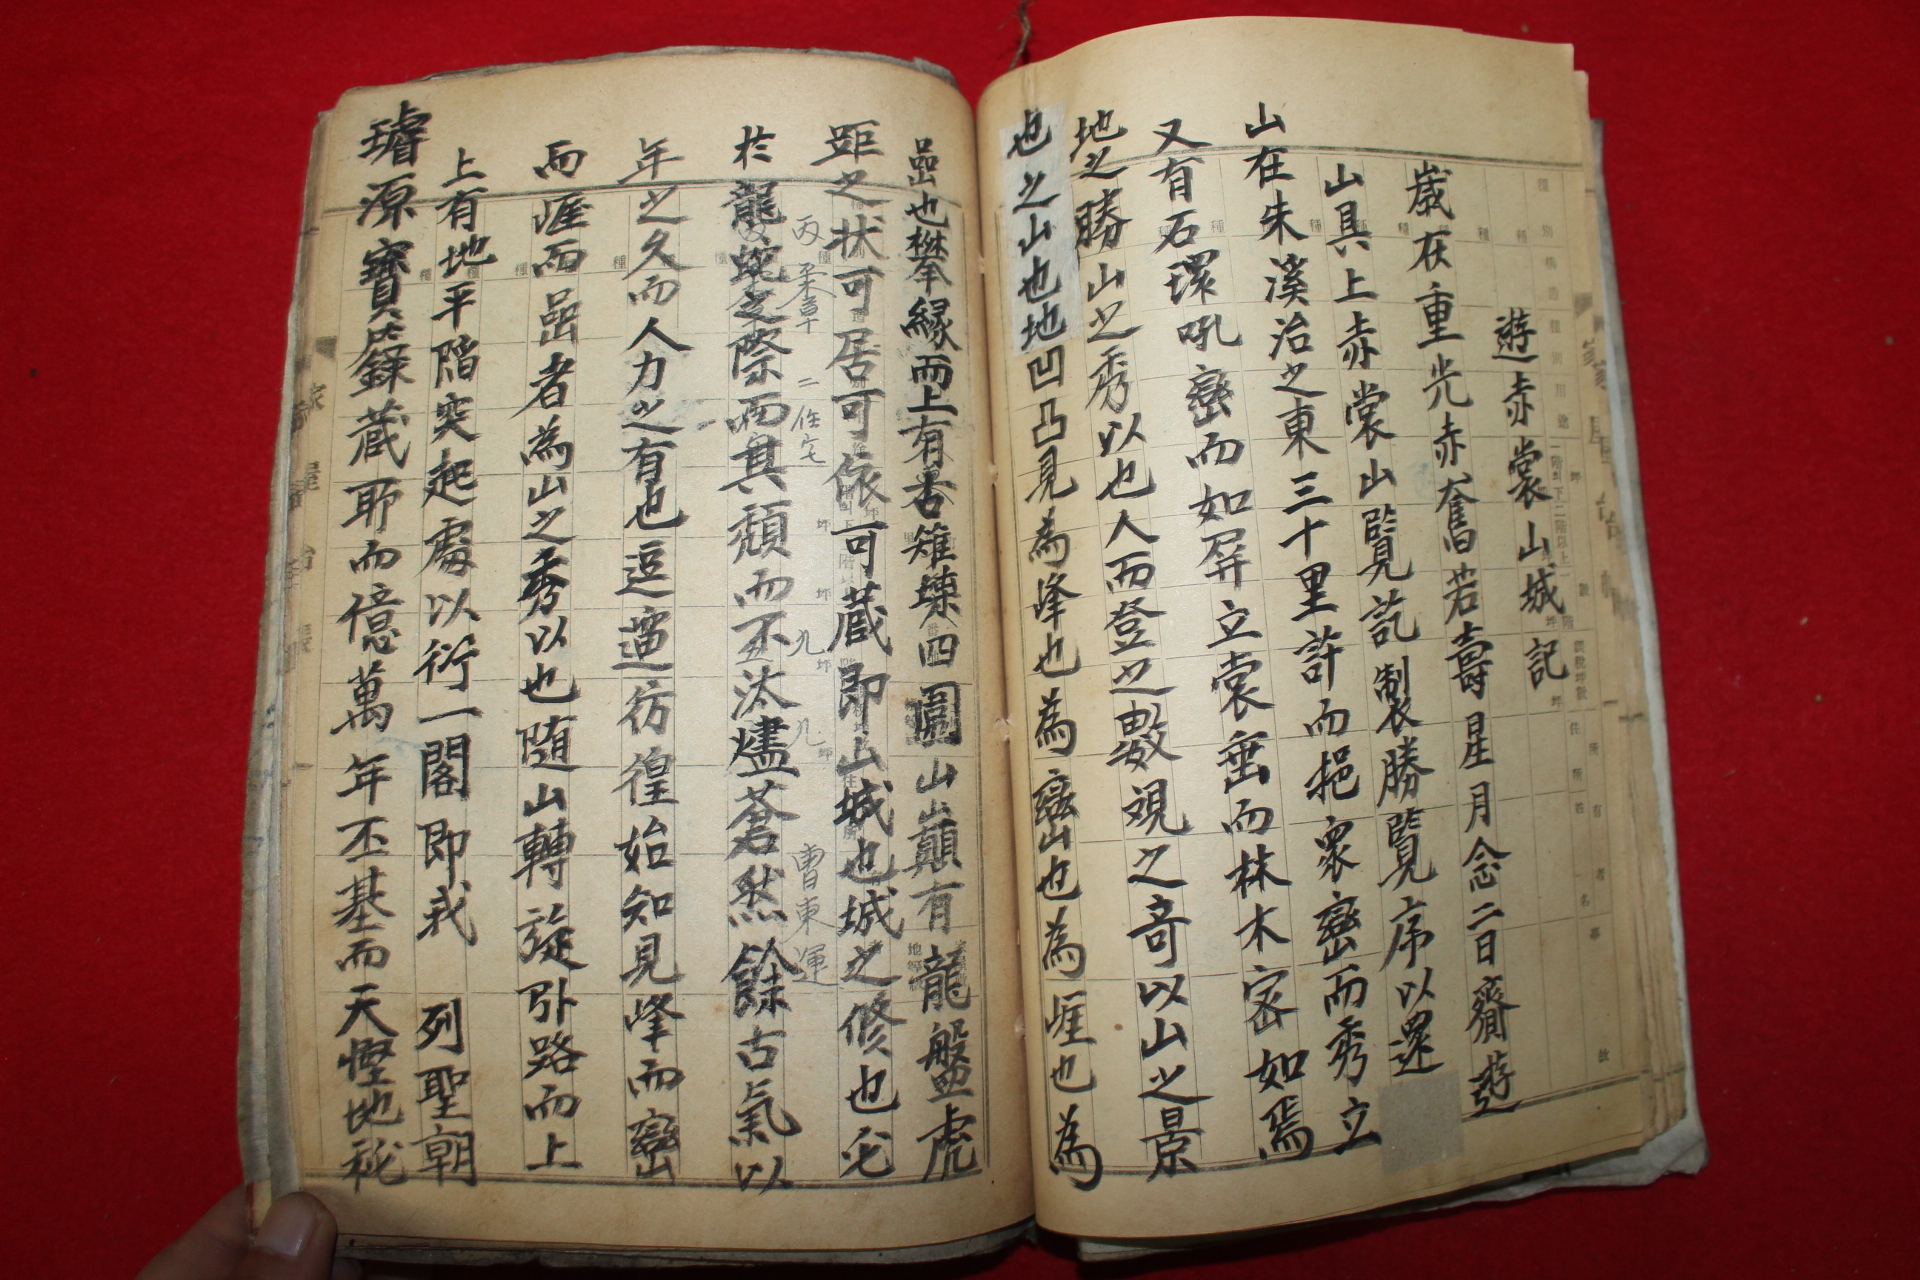 遊赤裳山城記
歲在重光赤奮若壽星月念二日齋遊
山具上赤裳山覽訖製勝覽序以還
山在朱溪治之東三十里許而挹衆巒而秀立
又有石環吼巒而如屛立裳垂而林木密如焉
地之勝山之秀以也人而登之數覌之奇以山之景
也之山也地凹凸見為峰也為巒也為崕也為
嵒也攀緣而上有沓雉堞四圍山巔有龍盤虎
距之状可居可依可蔵即山城也城之修也
於龍蛇之際而其頹而丕汰燼蒼然餘古氣以
年之久而人力之有也逗遛彷徨始知見峰而巒
而崕而嵒者為山之秀以也随山轉旋引路而上
上有地平階突起處以衍一閣即我 列聖朝
璿源寶錄蔵耶而億萬年丕基而天慳地秘